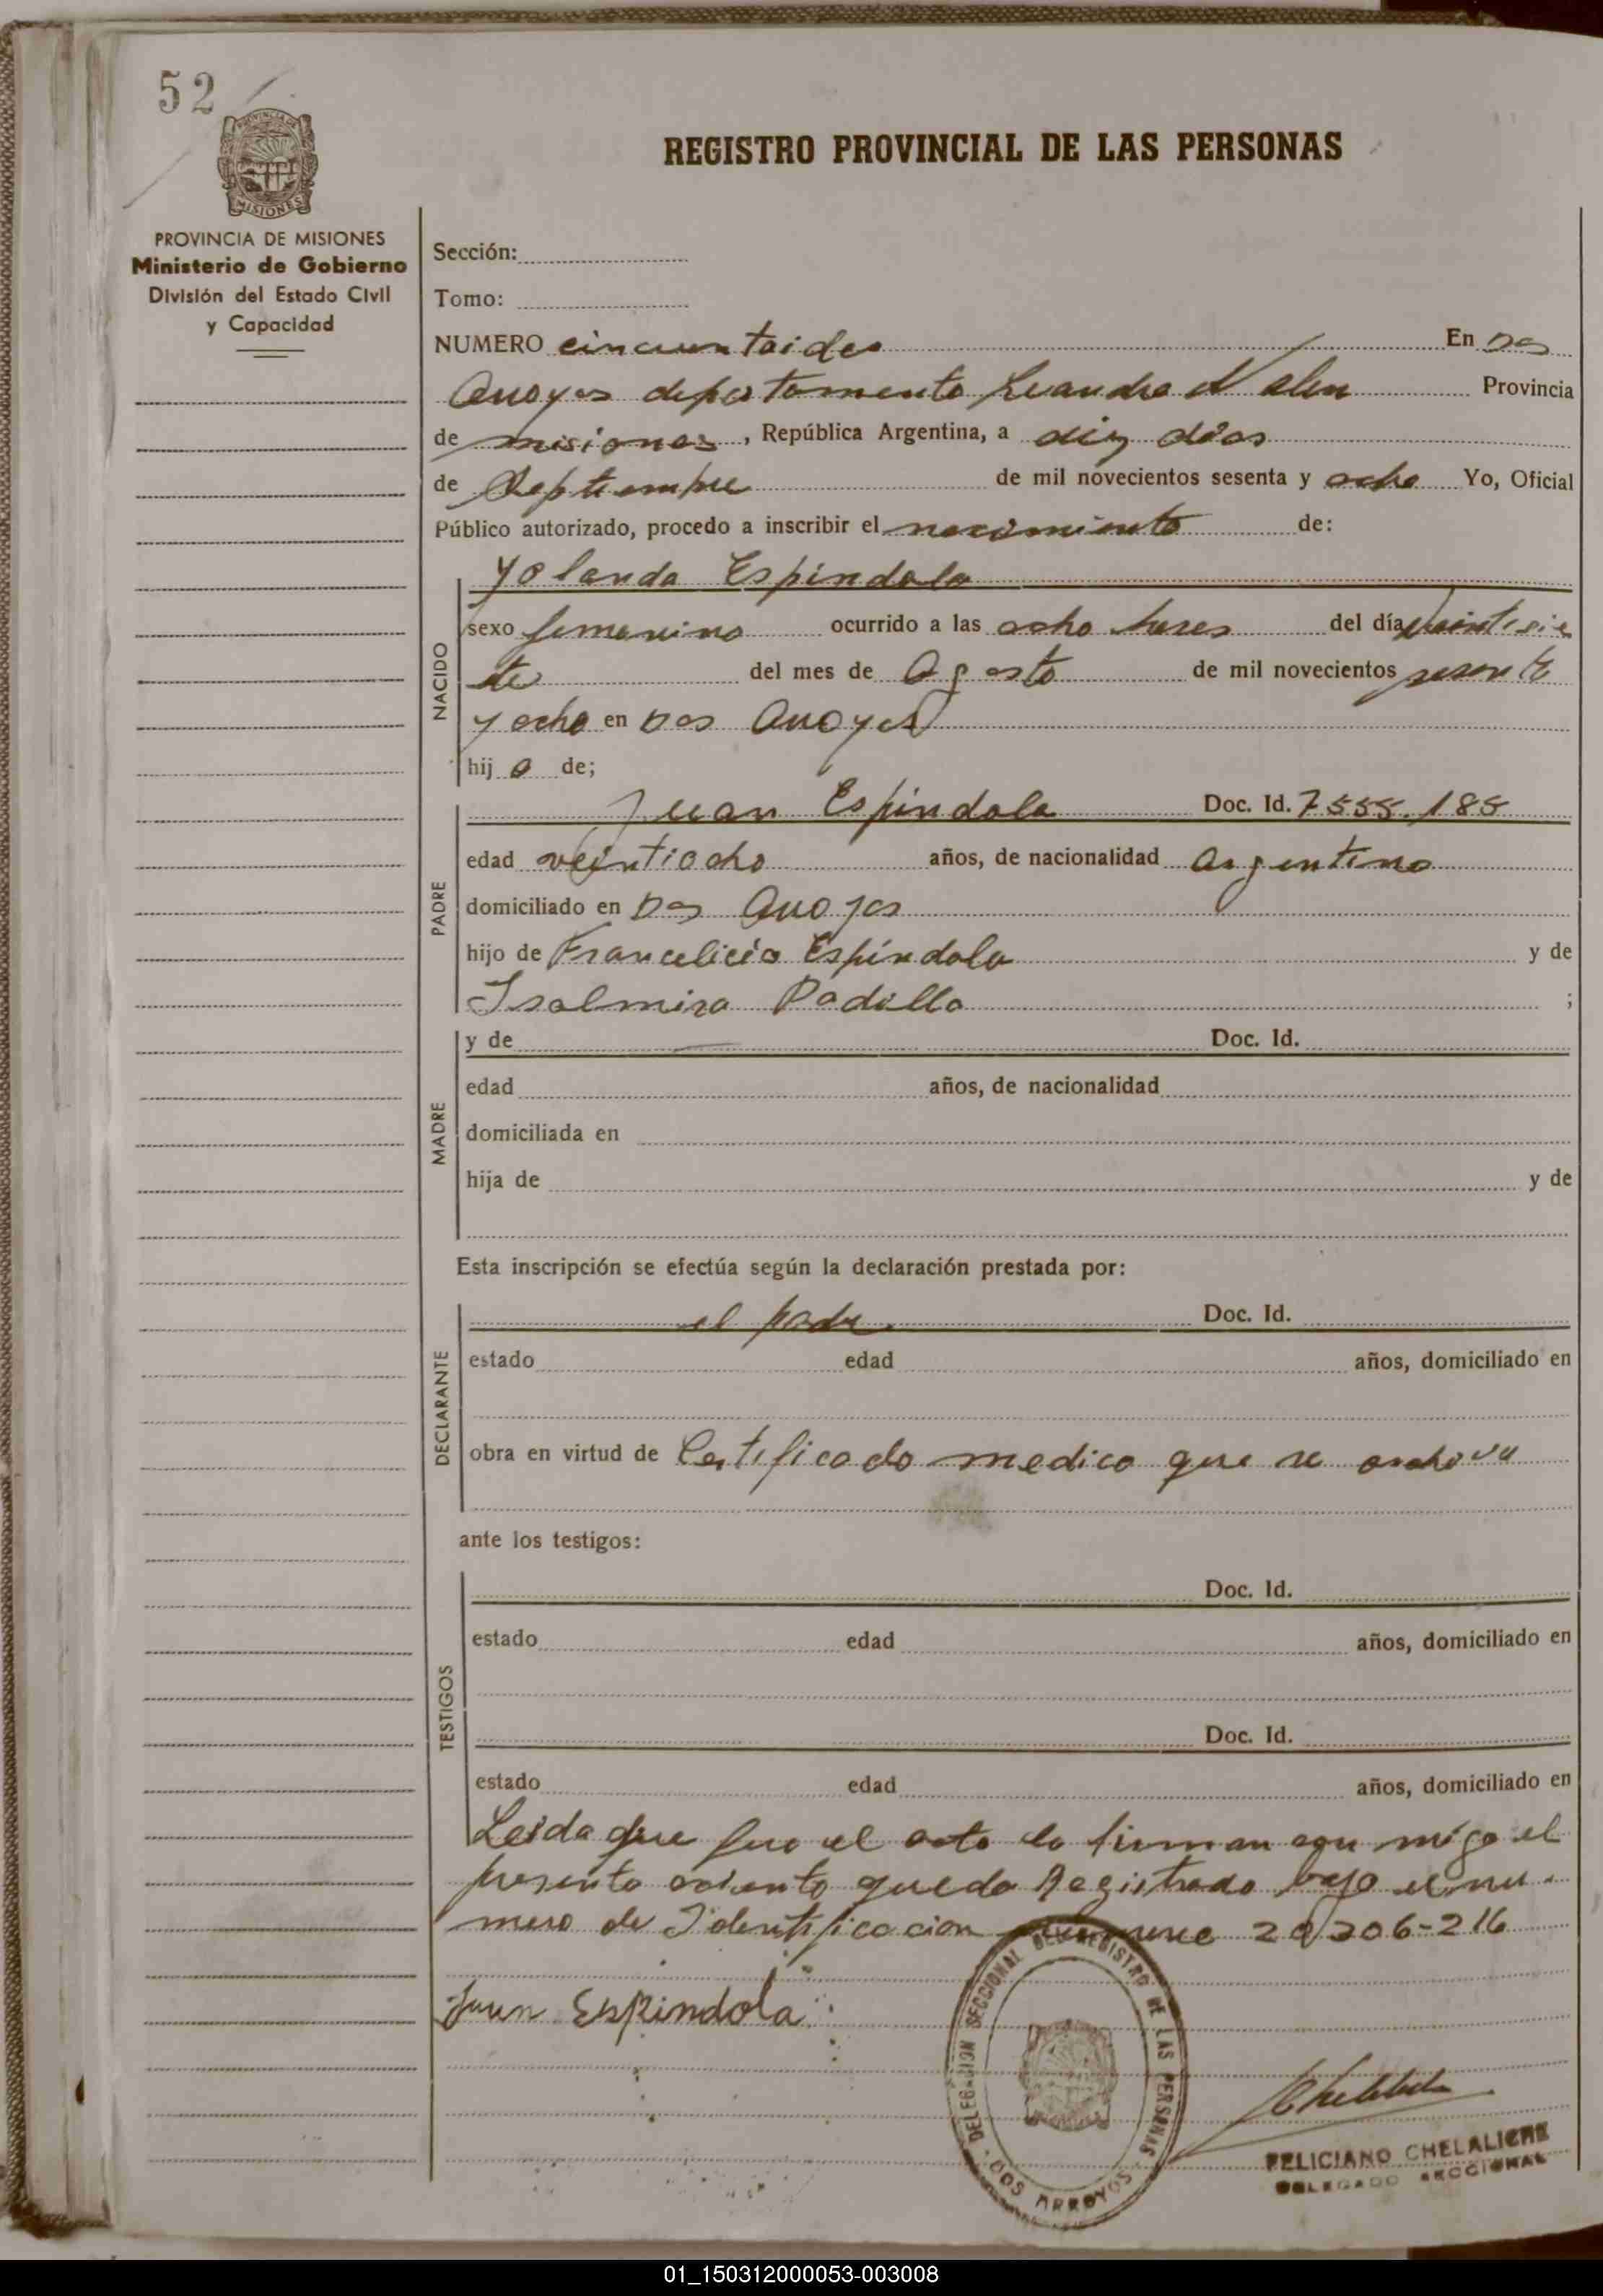 52
PROVINCIA DE MISIONES
Ministerio de Gobierno
División del Estado Civil
y Capacidad
REGISTRO PROVINCIAL DE LAS PERSONAS
Sección:
Tomo:
NUMERO cincuentaidos En Dos
Arroyos departamento Leandro N Alen Provincia
de misiones, República Argentina, a diez dias
de Septiembre de mil novecientos sesenta y ocho Yo, Oficial
Público autorizado, procedo a inscribir el nacimiento de:
NACIDO
Yolanda Espindola
sexo femenino ocurrido a las ocho horas del día veintisie
te del mes de Agosto de mil novecientos sesenta
y ocho en Dos Arroyos
hij a de;
PADRE
Juan Espindola Doc. Id. 7555.185
edad veintiocho años, de nacionalidad Argentino
domiciliado en Dos Arroyos
hijo de Francelicio Espíndola y de
Isalmira Padilla ;
MADRE
y de Doc. Id.
edad años, de nacionalidad
domiciliada en
hija de y de
Esta inscripción se efectúa según la declaración prestada por:
DECLARANTE
el padre Doc. Id.
estado edad años, domiciliado en
obra en virtud de Certificado medico que se archiva
ante los testigos:
TESTIGOS
Doc. Id.
estado edad años, domiciliado en
Doc. Id.
estado edad años, domiciliado en
Leida que fue el acta la firman con migo el
presente asiento queda Registrado bajo el nu
mero de Identificacion 20306-216
Juan Espindola
DELEGACION SECCIONAL DEL REGISTRO DE LAS PERSONAS
DOS ARROYOS
FELICIANO CHELALICHE
DELEGADO SECCIONAL
01_150312000053-003008